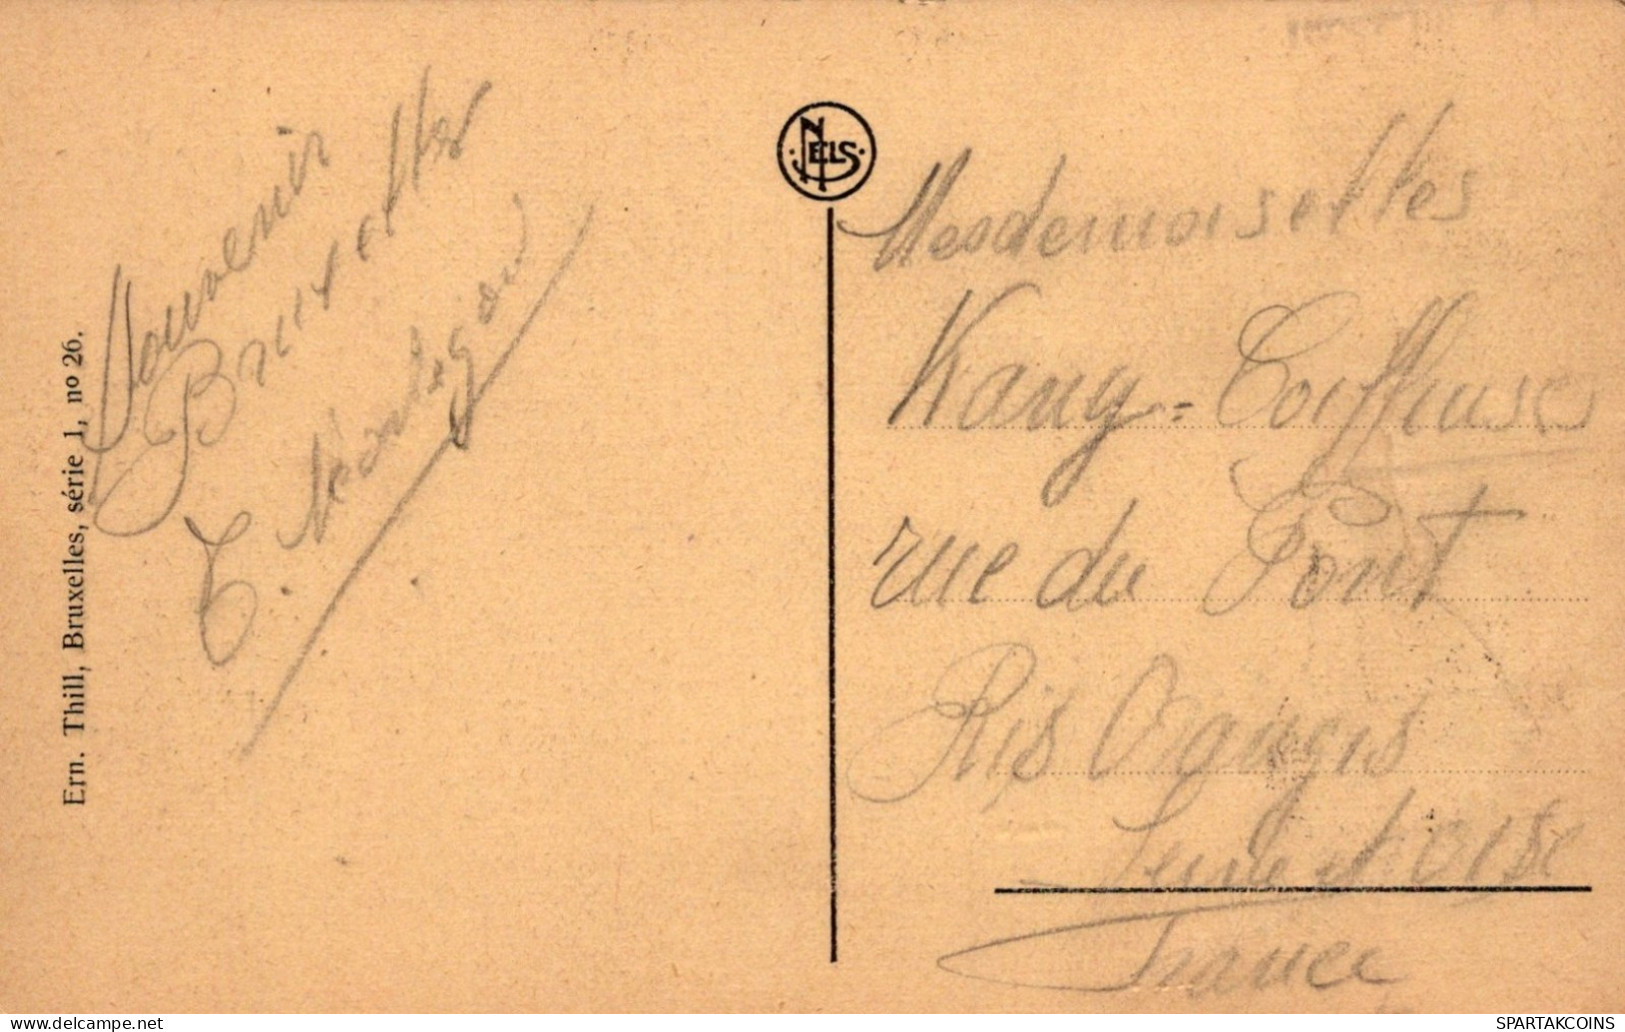 Souvenir
Bruxelles
Ern. Thill, Bruxelles, série 1, no 26.
NELS
Mesdemoiselles
Kang - Coiffeuses
rue du Pont
Ris Orangis
Seine et Oise
France
SPARTAKCOINS
delcampe.net